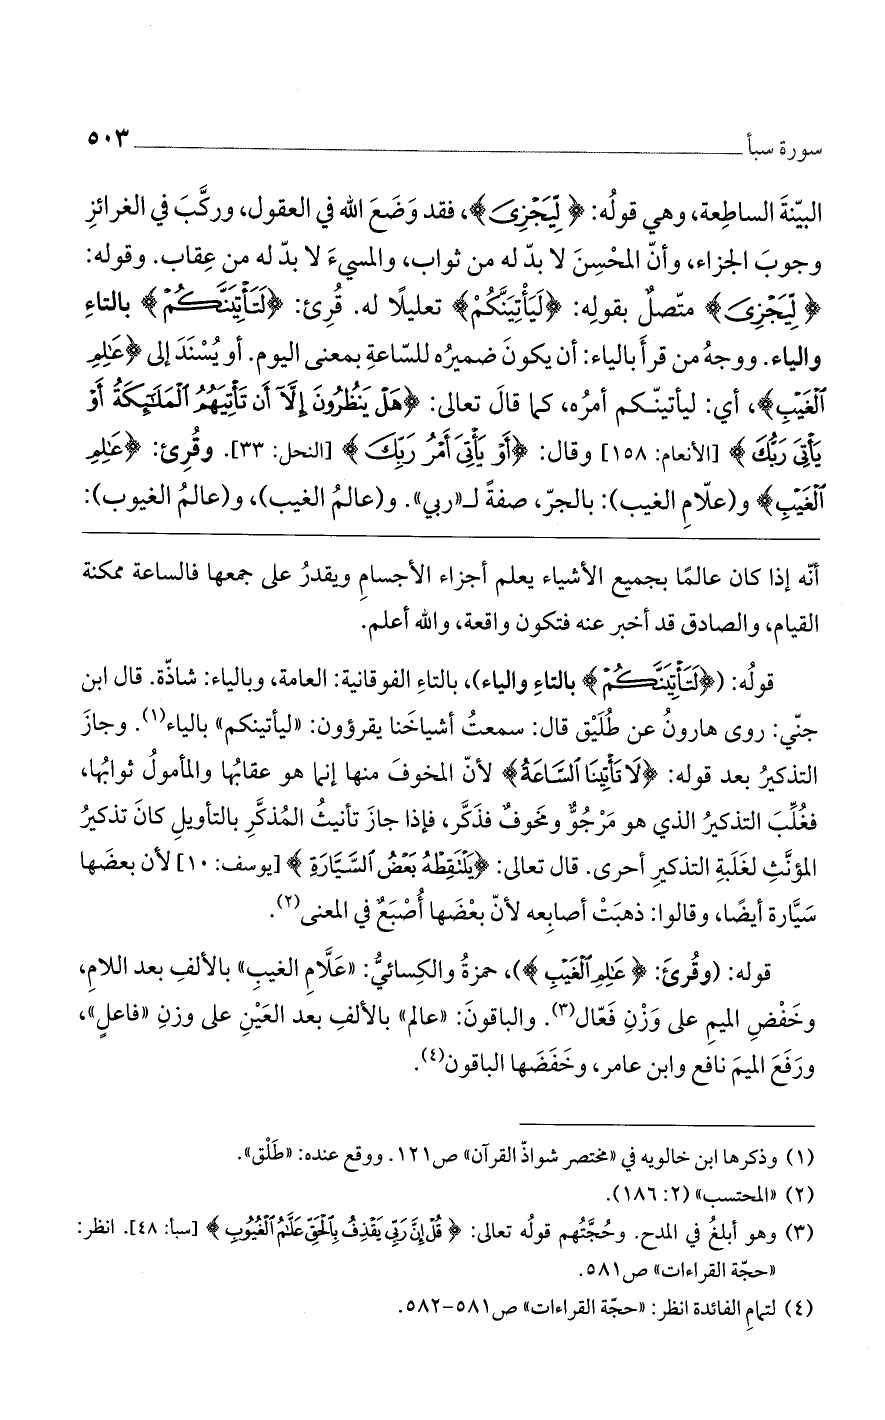 سورة سبأ ٥٠٣
البيّنةَ الساطِعة، وهي قولُه: ﴿لِّيَجْزِىَ﴾، فقد وَضَعَ الله في العقول، وركَّبَ في الغرائزِ
وجوبَ الجزاء، وأنّ المحْسِنَ لا بدّ له من ثواب، والمسيءَ لا بدّ له من عِقاب. وقوله:
﴿لِّيَجْزِىَ﴾ متّصلٌ بقولِه: ﴿لَيَأْتِيَنَّكُمْ﴾ تعليلًا له. قُرِئ: ﴿لَتَأْتِيَنَّكُمْ﴾ بالتاءِ
والياء. ووجهُ من قرأَ بالياء: أن يكونَ ضميرُه للسّاعةِ بمعنى اليوم. أو يُسْنَدَ إلى ﴿عَٰلِمِ
ٱلْغَيْبِ﴾، أي: ليأتينّكم أمرُه، كما قالَ تعالى: ﴿هَلْ يَنظُرُونَ إِلَّآ أَن تَأْتِيَهُمُ ٱلْمَلَٰٓئِكَةُ أَوْ
يَأْتِىَ رَبُّكَ﴾ [الأنعام: ١٥٨] وقال: ﴿أَوْ يَأْتِىَ أَمْرُ رَبِّكَ﴾ [النحل: ٣٣]. وقُرِئ: ﴿عَٰلِمِ
ٱلْغَيْبِ﴾ و(علّامِ الغيب): بالجرّ، صفةً لـ«ربي». و(عالمُ الغيب)، و(عالمُ الغيوب):
أنّه إذا كان عالمًا بجميع الأشياء يعلم أجزاء الأجسامِ ويقدرُ على جمعها فالساعة ممكنة
القيام، والصادق قد أخبر عنه فتكون واقعة، والله أعلم.
قولُه: (﴿لَتَأْتِيَنَّكُمْ﴾ بالتاءِ والياء)، بالتاءِ الفوقانية: العامة، وبالياء: شاذّة. قال ابن
جنّي: روى هارونُ عن طُلَيْق قال: سمعتُ أشياخَنا يقرؤون: «ليأتينكم» بالياء(١). وجازَ
التذكيرُ بعد قوله: ﴿لَا تَأْتِينَا ٱلسَّاعَةُ﴾ لأنّ المخوفَ منها إنما هو عقابُها والمأمولُ ثوابُها،
فغُلِّبَ التذكيرُ الذي هو مَرْجُوٌّ ومخوفٌ فذَكَّر، فإذا جازَ تأنيثُ المُذكَّرِ بالتأويلِ كانَ تذكيرُ
المؤنَّثِ لغَلَبةِ التذكيرِ أحرى. قال تعالى: ﴿يَلْتَقِطْهُ بَعْضُ ٱلسَّيَّارَةِ﴾ [يوسف: ١٠] لأن بعضَها
سَيَّارة أيضًا، وقالوا: ذهبَتْ أصابعه لأنّ بعْضَها أُصْبَعٌ في المعنى(٢).
قوله: (وقُرئَ: ﴿عَٰلِمِ ٱلْغَيْبِ﴾)، حمزةُ والكِسائيُّ: «عَلَّامِ الغيبِ» بالألفِ بعد اللامِ،
وخَفْضِ الميمِ على وَزْنِ فَعّال(٣). والباقونَ: «عالم» بالألفِ بعد العَيْنِ على وزنِ «فاعلٍ»،
ورفَعَ الميمَ نافع وابن عامر، وخَفَضَها الباقون(٤).
(١) وذكرها ابن خالويه في «مختصر شواذّ القرآن» ص١٢١. ووقع عنده: «طَلْق».
(٢) «المحتسب» (٢: ١٨٦).
(٣) وهو أبلغُ في المدح. وحُجَّتُهم قولُه تعالى: ﴿قُلْ إِنَّ رَبِّى يَقْذِفُ بِٱلْحَقِّ عَلَّٰمُ ٱلْغُيُوبِ﴾ [سبأ: ٤٨]. انظر:
«حجّة القراءات» ص٥٨١.
(٤) لتمامِ الفائدة انظر: «حجّة القراءات» ص٥٨١-٥٨٢.